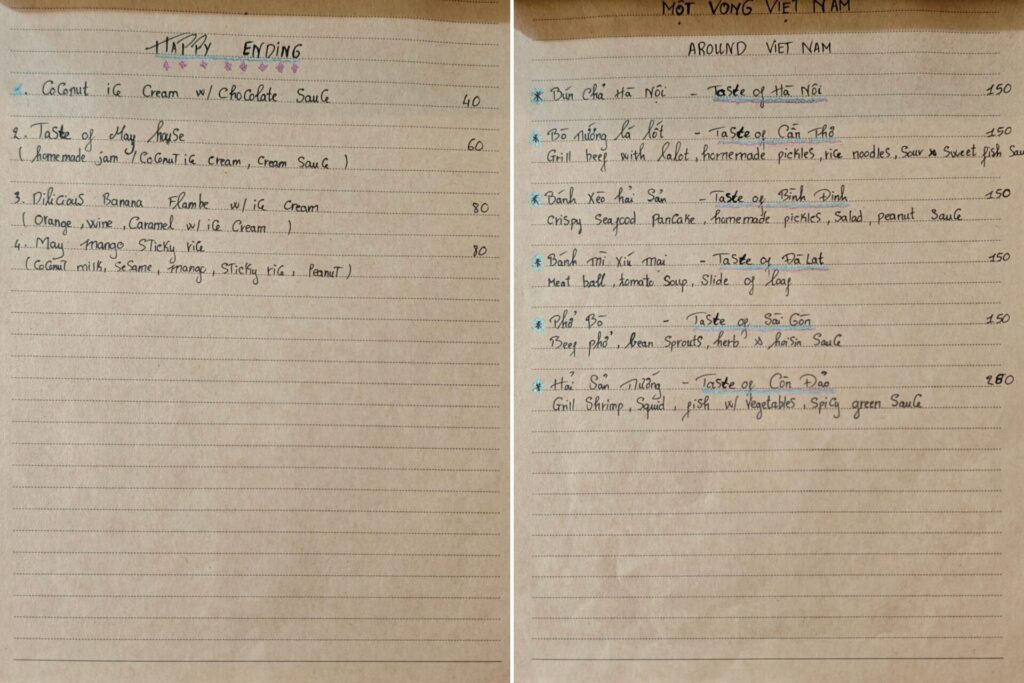 HAPPY ENDING
1. Coconut ice Cream w/ Chocolate Sauce 40
2. Taste of May house 60
( homemade jam / Coconut ice cream, Cream Sauce )
3. Dilicious Banana Flambe w/ ice Cream 80
( Orange, wine, Caramel w/ ice Cream )
4. May mango Sticky rice 80
(Coconut milk, Sesame, mango, Sticky rice, Peanut)
MỘT VÒNG VIỆT NAM
AROUND VIET NAM
* Bún Chả Hà Nội - Taste of Hà Nội 150
* Bò nướng lá lốt - Taste of Cần Thơ 150
Grill beef with lalot, homemade pickles, rice noodles, Sour & Sweet fish Sau
* Bánh Xèo hải Sản - Taste of Bình Định 150
Crispy Seafood Pancake, homemade pickles, Salad, peanut Sauce
* Bánh mì xíu mại - Taste of Đà Lạt 150
Meat ball, tomato Soup, Slide of loaf
* Phở Bò - Taste of Sài Gòn 150
Beef phở, bean Sprouts, herb & hoisin Sauce
* Hải Sản Nướng - Taste of Côn Đảo 280
Grill Shrimp, Squid, fish w/ vegetables, Spicy green Sauce